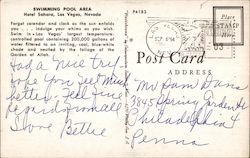 SWIMMING POOL AREA
Hotel Sahara, Las Vegas, Nevada
Forget calendar and clock as the sun enfolds
you . . . indulge your whims as you wish.
Swim in Las Vegas' largest temperature-
controlled pool containing 200,000 gallons of
water filtered to an inviting, cool, blue-white
shade and nestled by the foliage of the
Garden of Allah.
Had a nice trip
hope you feel much
better. Feel fine
Love Bettie
P6183
Post Card
ADDRESS
PLACE
STAMP
HERE
Mr Sam Dana
3845 Spring Garden St
Philadelphia 4
Penna